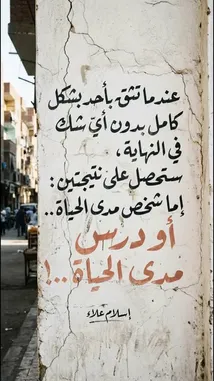 عندما تثق بأحد بشكل
كامل بدون أيّ شك
في النهاية،
ستحصل على نتيجتين:
إما شخص مدى الحياة..
أو درس
مدى الحياة..!
إسلام علاء